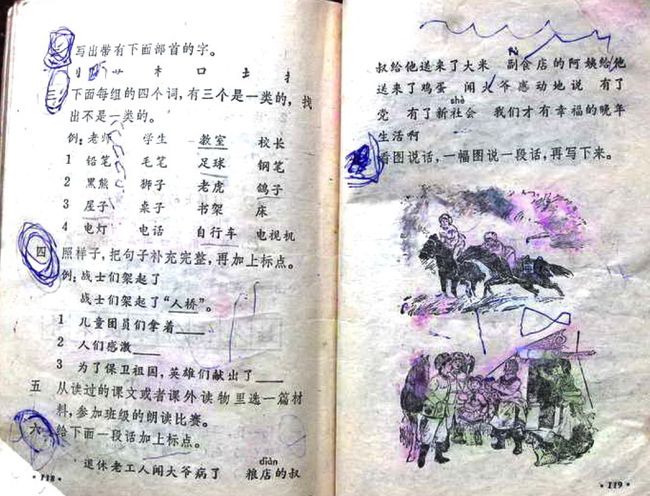 写出带有下面部首的字。
艹 木 口 土 扌
下面每组的四个词,有三个是一类的,找
出不是一类的。
例:老师 学生 教室 校长
1 铅笔 毛笔 足球 钢笔
2 黑熊 狮子 老虎 鸽子
3 屋子 桌子 书架 床
4 电灯 电话 自行车 电视机
四 照样子,把句子补充完整,再加上标点。
例:战士们架起了
战士们架起了“人桥”。
1 儿童团员们拿着____
2 人们感激____
3 为了保卫祖国,英雄们献出了____
五 从读过的课文或者课外读物里选一篇材
料,参加班级的朗读比赛。
六 给下面一段话加上标点。
diàn
退休老工人闻大爷病了 粮店的叔
·118·
叔给他送来了大米 副食店的阿姨给他
送来了鸡蛋 闻大爷感动地说 有了
shè
党 有了新社会 我们才有幸福的晚年
生活啊
看图说话,一幅图说一段话,再写下来。
·119·